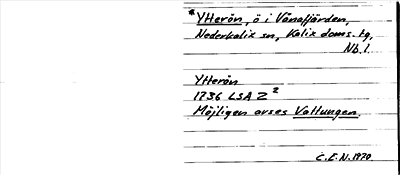 *Ytterön, ö i Vånafjärden,
Nederkalix sn, Kalix doms. tg,
Nb. l.
Ytterön
1736 LSA Z²
Möjligen avses Vattungen.
C.E.N. 1970